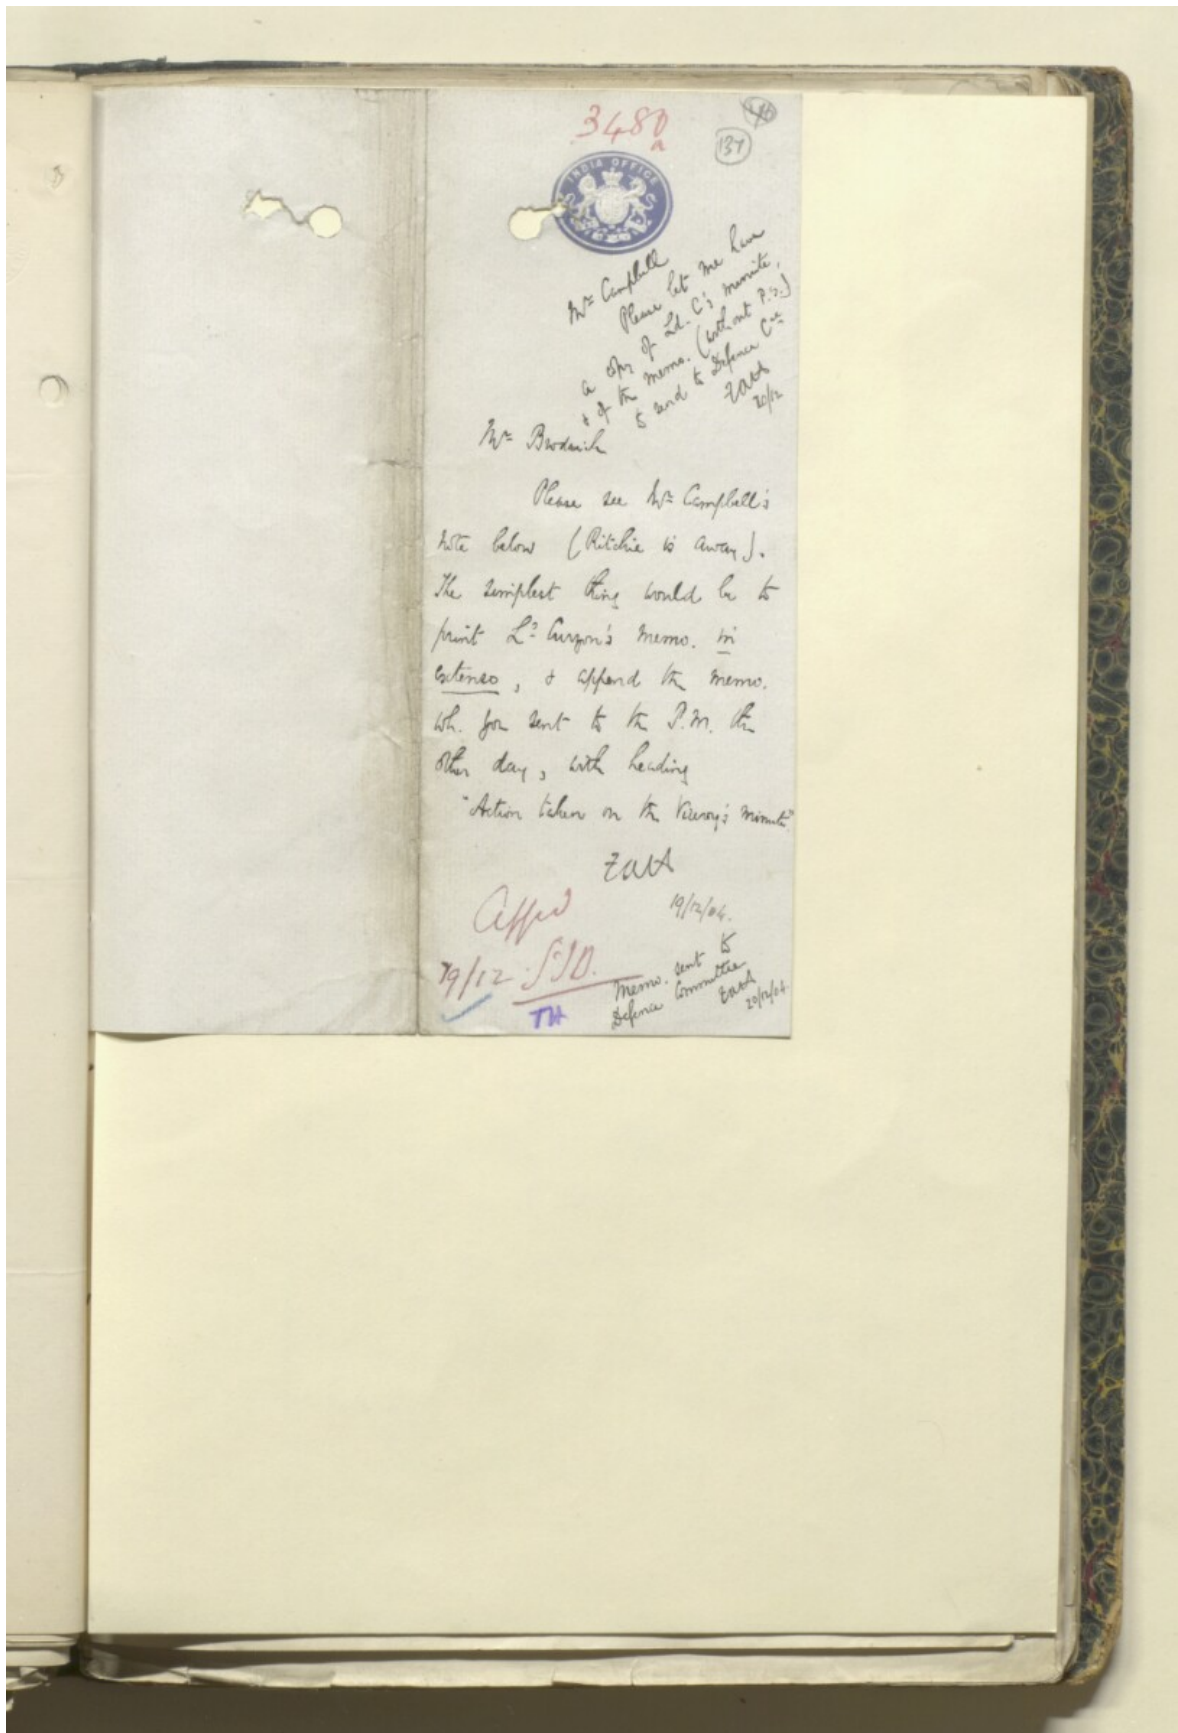 3480
a
137
INDIA OFFICE
Mr Campbell
Please let me have
a copy of Ld. C's minute,
& of the memo. (without P.S.)
to send to Defence Cee
20/12
Mr Brodrick
Please see Mr Campbell's
note below (Ritchie is away).
The simplest thing would be to
print Ld Curzon's memo. in
extenso, & append the memo.
wh. you sent to the P.M. the
other day, with heading
"Action taken on the Viceroy's minute"
19/12/04.
Appd
19/12 StJB.
TH
Memo. sent to
Defence Committee
20/12/04.